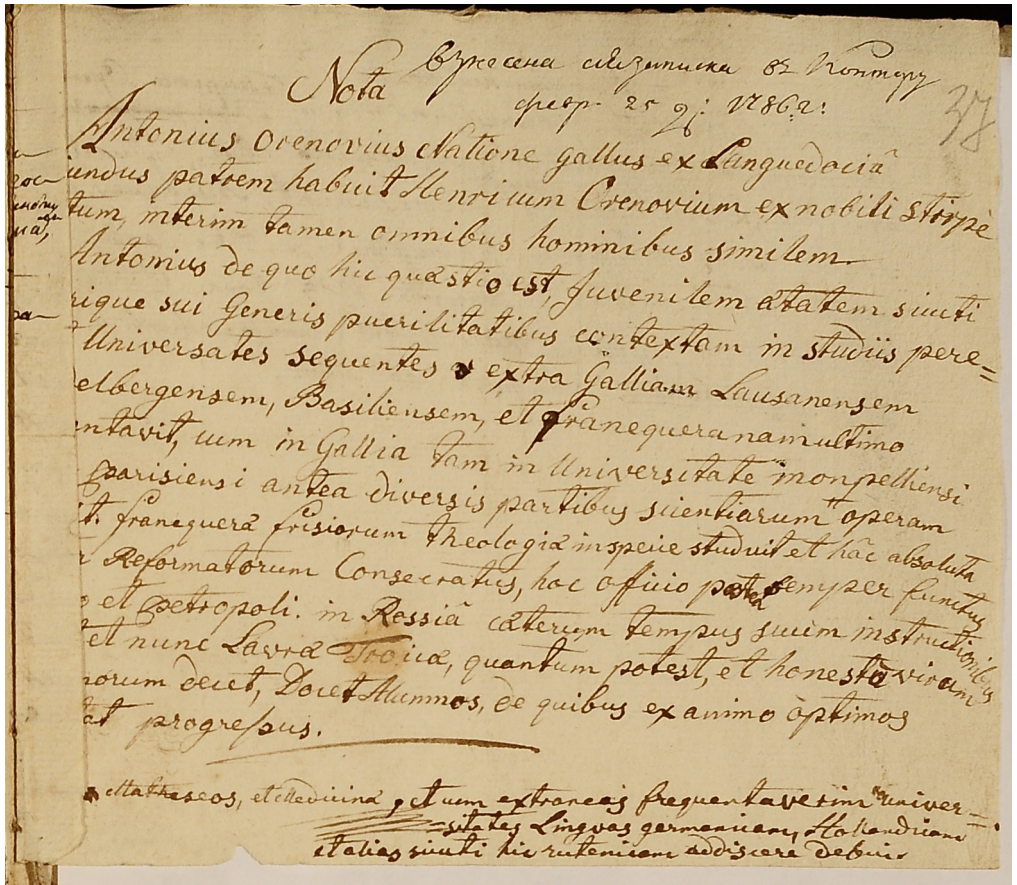 взнесена сия записка въ Контору
Nota
февр. 25 д: 1786 г:
37
Antonius Orenovius Natione Gallus ex Languedociâ
iundus patrem habuit Henricum Orenovium ex nobili stirpe
tum, interim tamen omnibus hominibus similem
Antonius de quo hic quæstio est, Juvenilem ætatem sicuti
rique sui Generis puerilitatibus contextam in studiis pere=
Universates sequentes extra Galliam Lausanensem
elbergensem, Basiliensem, et franequeranam ultimo
entavit, cum in Gallia tam in Universitate monpelliensi
parisiensi antea diversis partibus scientiarum operam
it. franequeræ frisiorum theologiæ in specie studuit et hâc absoluta
Reformatorum Consecratus, hoc officio postea semper functus
et petropoli. in Rossiâ cæterum tempus suum instructionibus
et nunc Lavræ Troicæ, quantum potest, et honesto viro
norum decet, Docet Alumnos, de quibus ex animo optimos
tat progressus.
Matheseos, et Medicinæ, et cum extraneas frequentaverim univer=
=sitates Linguas germanicam, Hollandicam
et alias sicuti hic rutenicam addiscere debui.